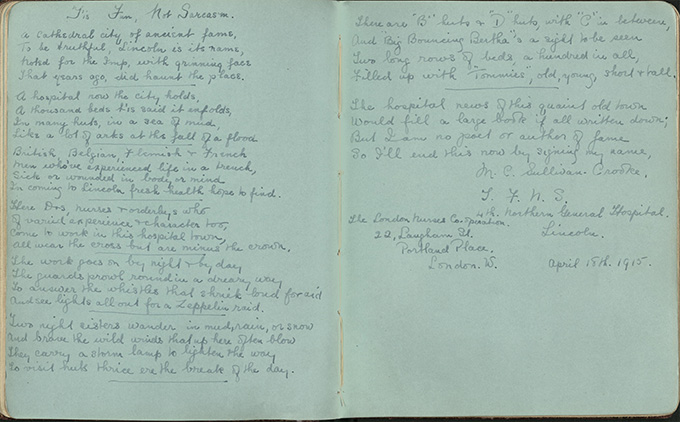 'Tis Fun, Not Sarcasm.
A cathedral city of ancient fame,
To be truthful, Lincoln is its name,
Noted for the Imp, with grinning face
That years ago, did haunt the place.
A hospital now the city holds,
A thousand beds 'tis said it enfolds,
In many huts, in a sea of mud,
Like a lot of arks at the fall of a flood
British, Belgian, Flemish & French
Men who've experienced life in a trench,
Sick or wounded in body or mind
In coming to Lincoln fresh health hope to find.
There Drs nurses & orderlys who
Of varied experience & character too,
Come to work in this hospital town,
All wear the cross but are minus the crown.
The work goes on by night & by day
The guards prowl round in a dreary way
To answer the whistles that shriek loud for aid
And see lights all out for a Zeppelin raid.
Two night sisters wander in mud, rain, or snow
And brave the wild winds that up here often blow
They carry a storm lamp to lighten the way
To visit huts thrice ere the break of the day.
There are "B" huts & "D" huts, with "C" in between,
And Big Bouncing Bertha's a sight to be seen
Two long rows of beds, a hundred in all,
Filled up with "Tommies", old, young, short & tall.
The hospital news of this quaint old town
Would fill a large book if all written down;
But I am no poet or author of fame
So I'll end this now by signing my name,
M. C. Sullivan Crooke,
T. F. N. S.
4th Northern General Hospital.
The London Nurses Co-operation
Lincoln.
22, Langham St.
Portland Place.
London. W.
April 18th. 1915.